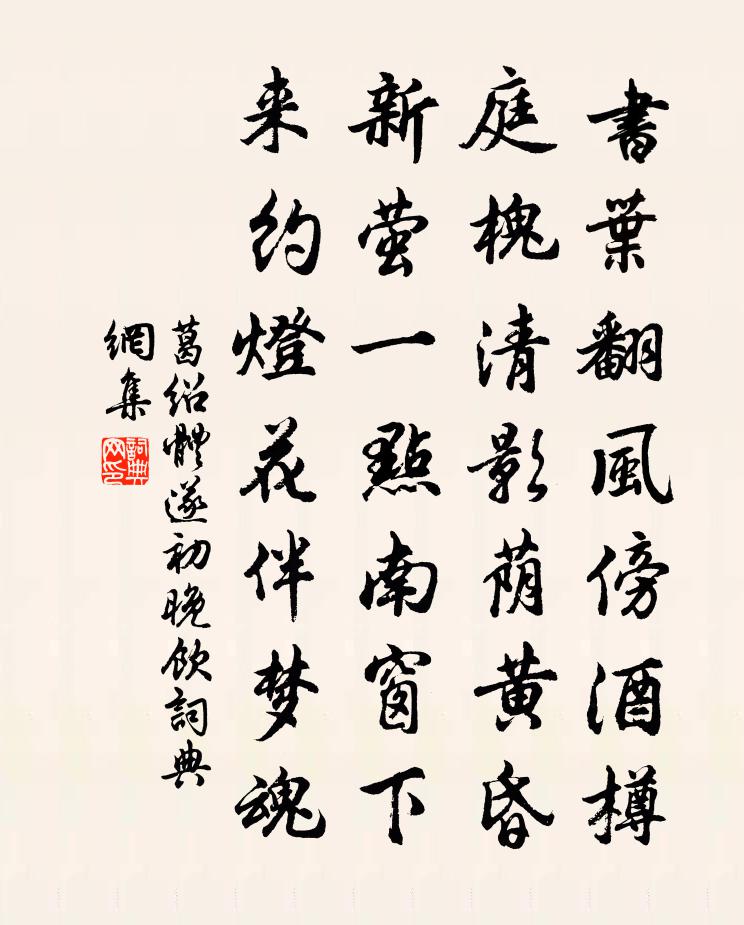 書葉翻風傍酒樽
庭槐清影荫黄昏
新萤一點南窗下
来约燈花伴梦魂
葛绍體遂初晚飲詞典
網集
詞典网印